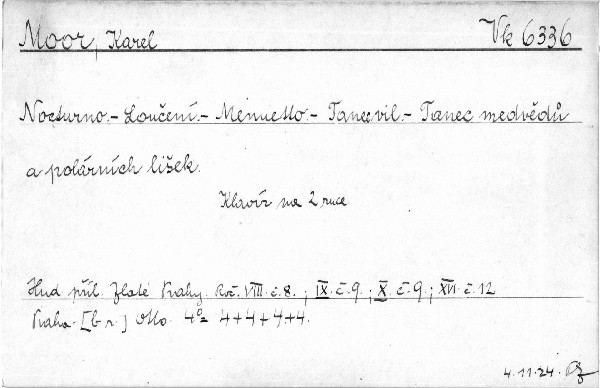 Moor, Karel Vk 6336
Nocturno.- Loučení.- Menuetto.- Tanec vil.- Tanec medvědů
a polárních lišek.
Klavír na 2 ruce
Hud příl. Zlaté Prahy. Roč. VIII. č. 8. ; IX. č. 9. ; X. č. 9. ; XVI. č. 12
Praha. [b r.] Otto. 4° 4+4+4+4.
4.11.24.